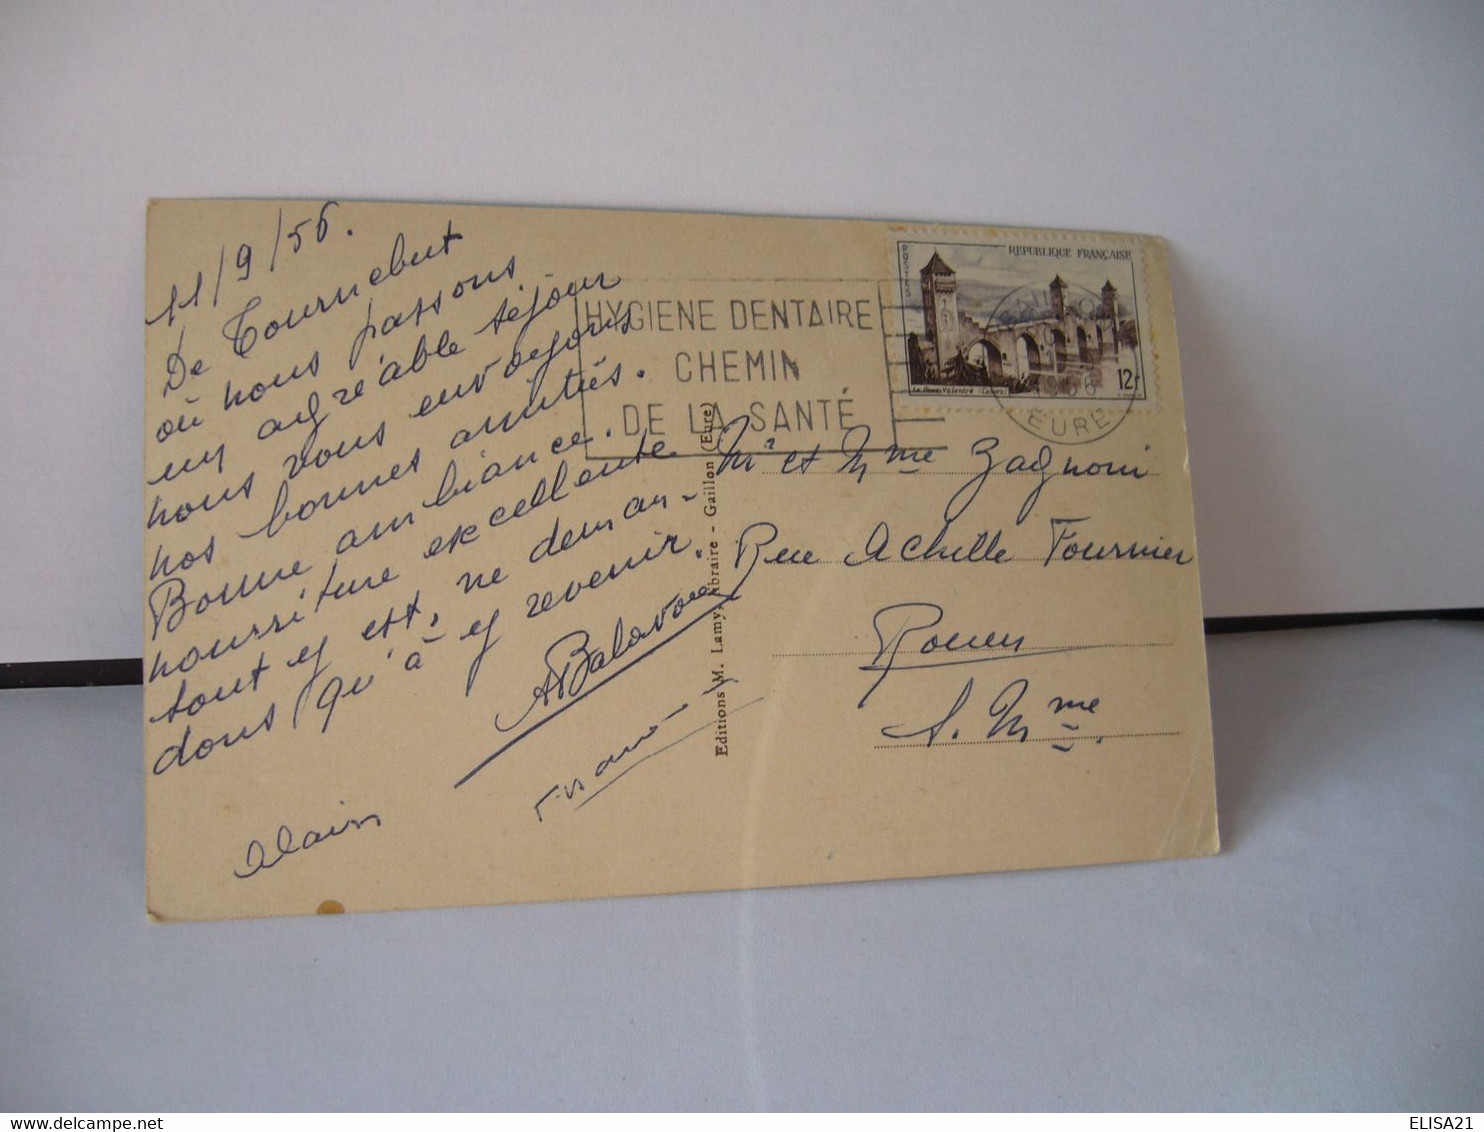 11/9/56.
De Tournebut
où nous passons
un agréable séjour
nous vous envoyons
nos bonnes amitiés.
Bonne ambiance.
nourriture excellente
tout y est, ne deman-
dons qu'à y revenir.
ABalavoine
Alain
HYGIENE DENTAIRE
CHEMIN
DE LA SANTÉ
POSTES
REPUBLIQUE FRANÇAISE
Le Pont Valentré (Cahors)
12F
GAILLON
1956
EURE
Editions M. Lamy, libraire - Gaillon (Eure)
Mr et Mme Zagnoni
Rue Achille Fournier
Rouen
S. Mme.
ELISA21